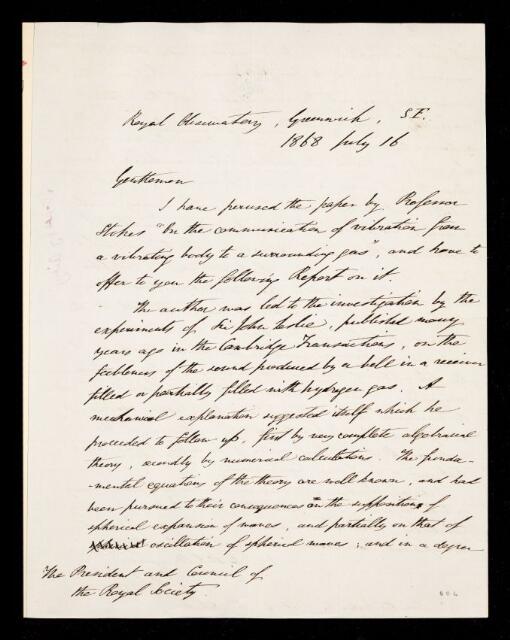 Royal Observatory, Greenwich, S.E.
1868 July 16
Gentlemen
I have perused the paper by Professor
Stokes "On the communication of vibration from
a vibrating body to a surrounding gas", and have to
offer to you the following Report on it.
The author was led to the investigation by the
experiments of Sir John Leslie, published many
years ago in the Cambridge Transactions, on the
feebleness of the sound produced by a bell in a receiver
filled or partially filled with hydrogen gas. A
mechanical explanation suggested itself which he
proceeded to follow up, first by very complete algebraical
theory, secondly by numerical calculations. The funda-
-mental equations of the theory are well known, and had
been pursued to their consequences on the supposition of
spherical expansion of waves, and partially on that of
oscillation of spherical waves; and in a degree
The President and Council of
the Royal Society.